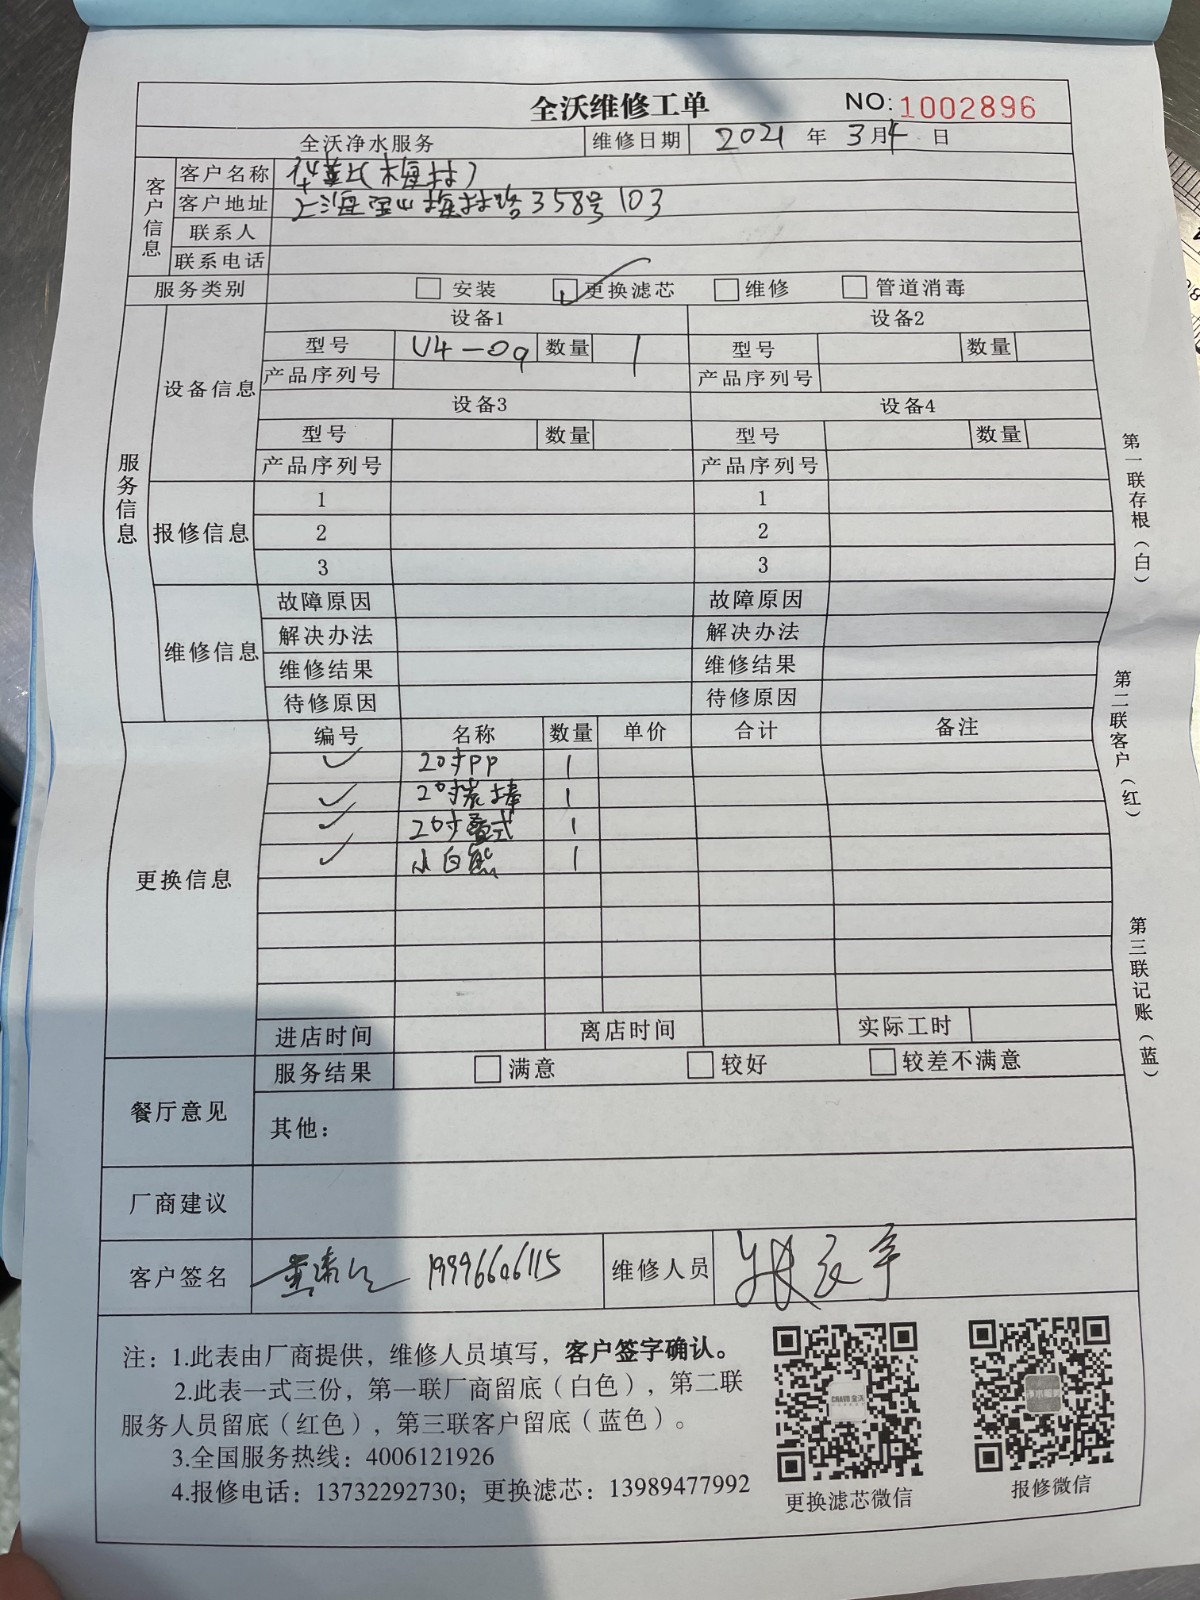 全沃维修工单 NO:1002896
全沃净水服务 维修日期 2021 年 3月4日
客户信息
客户名称
客户地址 上海宝山梅林路358号103
联系人
联系电话
服务类别 安装 更换滤芯 维修 管道消毒
服务信息
设备信息
设备1 设备2
型号 U4-09 数量 1 型号 数量
产品序列号 产品序列号
设备3 设备4
型号 数量 型号 数量
产品序列号 产品序列号
报修信息
1 1
2 2
3 3
维修信息
故障原因 故障原因
解决办法 解决办法
维修结果 维修结果
待修原因 待修原因
更换信息
编号 名称 数量 单价 合计 备注
20寸PP 1
20寸炭棒 1
20寸叠式 1
小白熊 1
进店时间 离店时间 实际工时
餐厅意见
服务结果 满意 较好 较差不满意
其他：
厂商建议
客户签名 19996606115 维修人员
注：1.此表由厂商提供，维修人员填写，客户签字确认。
2.此表一式三份，第一联厂商留底（白色），第二联
服务人员留底（红色），第三联客户留底（蓝色）。
3.全国服务热线：4006121926
4.报修电话：13732292730；更换滤芯：13989477992
更换滤芯微信
报修微信
第一联存根（白）
第二联客户（红）
第三联记账（蓝）